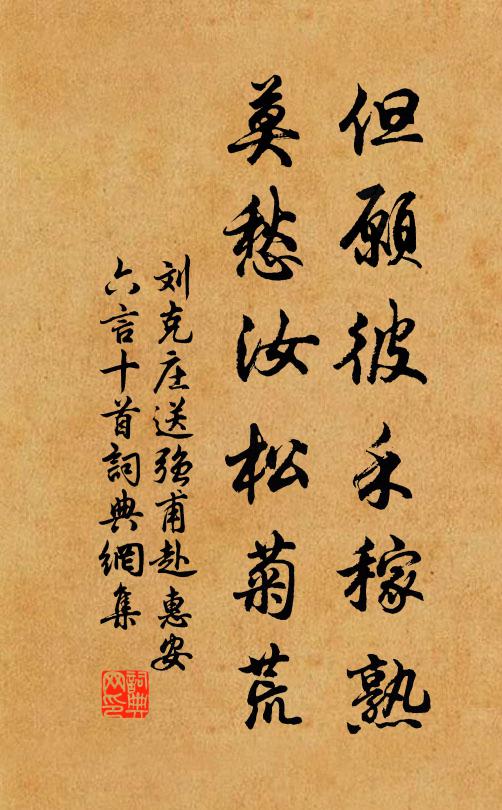 但願彼禾稼熟
莫愁汝松菊荒
刘克庄送強甫赴惠安
六言十首詞典網集
詞典網印